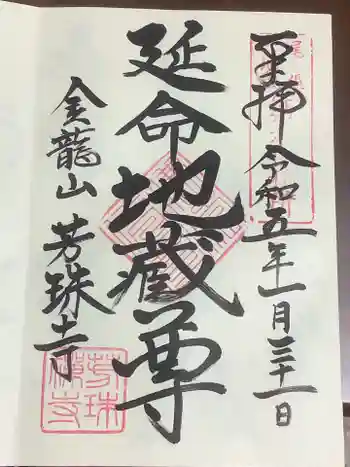 奉拝 令和五年一月三十一日
延命地蔵尊
金龍山 芳珠寺
芳珠禅寺